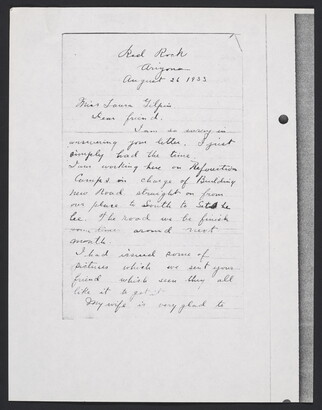 Red Rock
Arizona
August 26 1933
Miss Laura Gilpin
Dear friend.
I am so sorry in
answering your letter. I just
simply had the time.
I am working here on Reforestion
Camps in charge of Building
new Road straight on from
our place to South to
lee. The road we be finish
some time around next
month.
I had issued some of
pictures which we sent your
friend which seen they all
like it to get it
My wife is very glad to